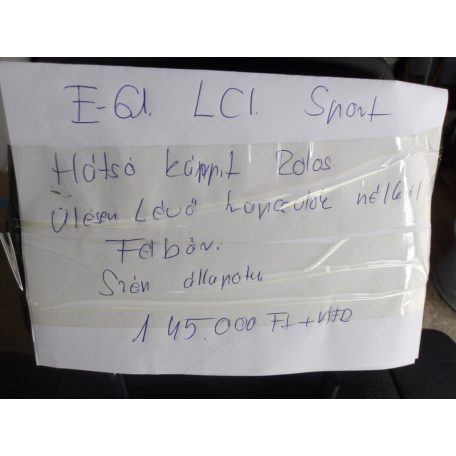 E-61. LCI. Sport
Hátsó kárpit Rólós
Ülésen Lévő kapcsolók nélkül
Félbőr.
Szén állapotú
145.000 Ft + ÁFA